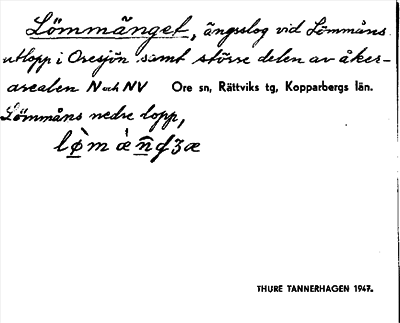 Lömmänget, ängsslog vid Lömmåns
utlopp i Oresjön samt större delen av åker-
arealen N och NV Ore sn, Rättviks tg, Kopparbergs län.
Lömmåns nedre lopp,
THURE TANNERHAGEN 1947.